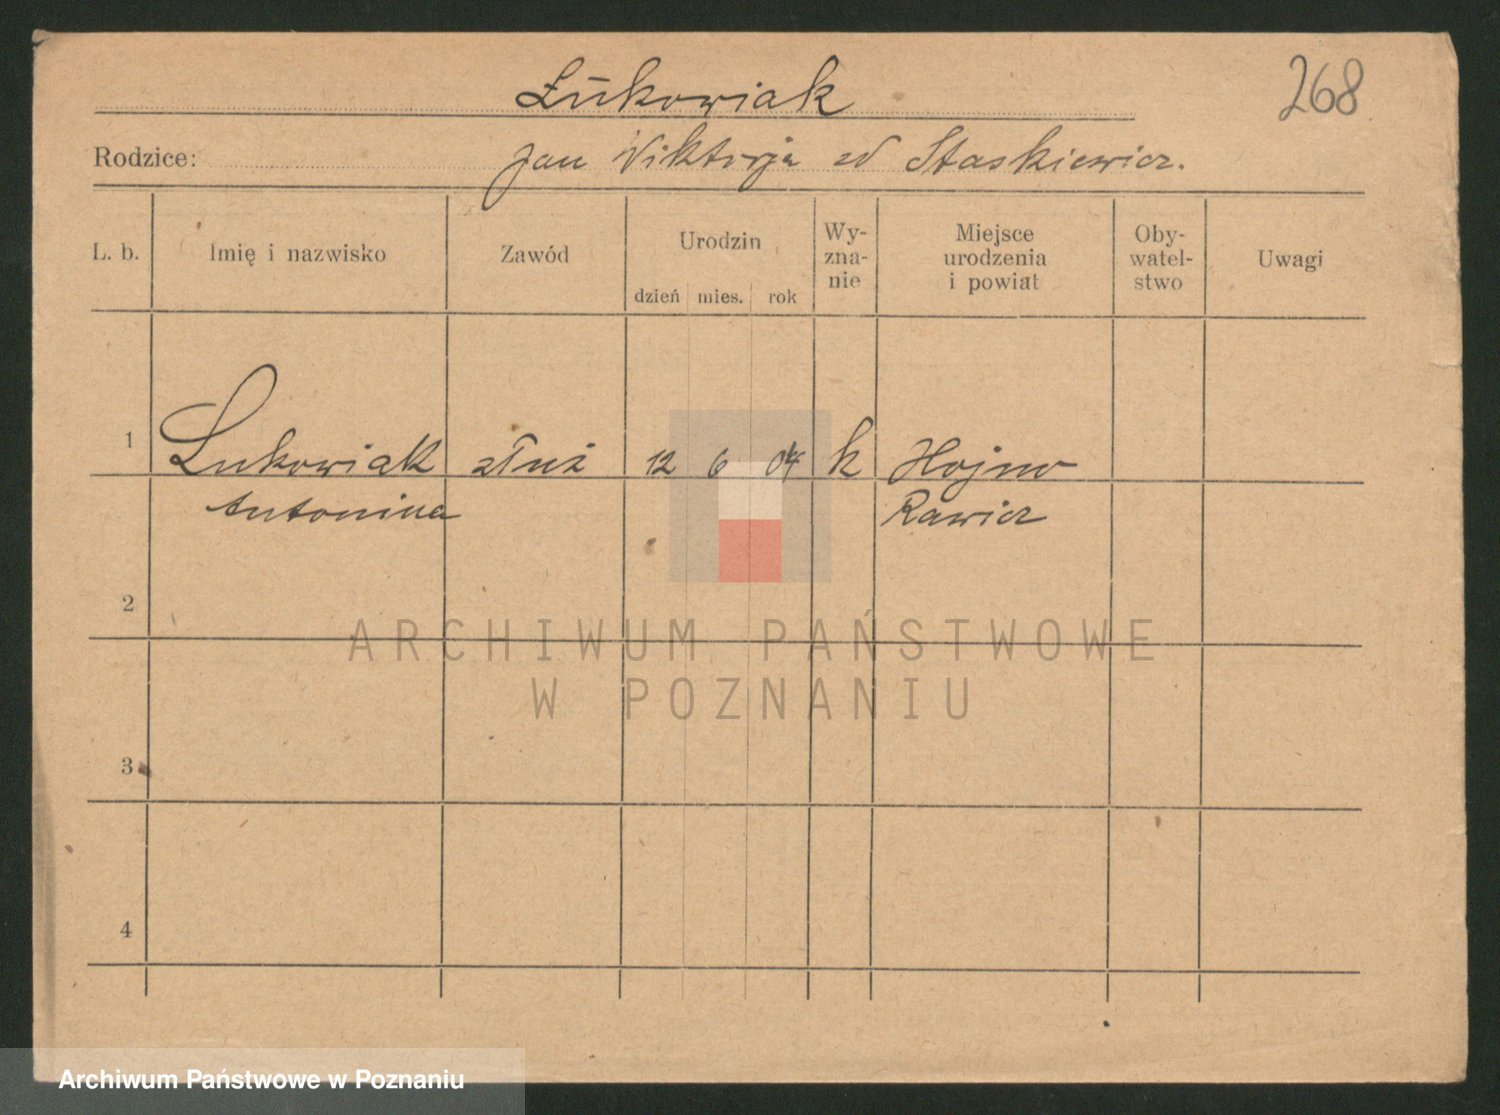 Łukowiak
268
Rodzice: Jan Wiktorja zd Staskiewicz.
L. b. Imię i nazwisko Zawód Urodzin dzień mies. rok Wy-zna-nie Miejsce urodzenia i powiat Oby-watel-stwo Uwagi
1 Łukowiak służ 12 6 04 k Hojno
Antonina Rawicz
2
ARCHIWUM PAŃSTWOWE
W POZNANIU
3
4
Archiwum Państwowe w Poznaniu